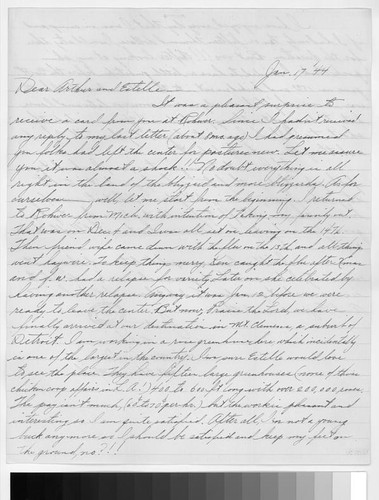 Jan. 17 '44
Dear Arthur and Estelle
It was a pleasant surprise to
receive a card from you at Rohwer. Since I hadn't received
any reply to my last letter (about 8 mos. ago) I had presumed
you folks had left the center for pastures new. Let me assure
you it was almost a shock!! No doubt everything is all
right in the land of the blizzard and more blizzards. As for
ourselves, well let me start from the beginning. I returned
to Rohwer from Mich. with intention of taking my family out.
That was on Dec. 4 and I was all set on leaving on the 14th.
Then friend wife came down with the flu on the 13th and all things
went haywire. To keep things merry, Son caught the flu after Xmas
and had a relapse for variety. Later on she celebrated by
having another relapse. Anyway it was Jan. 12, before we were
ready to leave the center. But now, Praise the Lord, we have
finally arrived at our destination in Mt. Clemens, a suburb of
Detroit. I am working in a rose greenhouse here which incidentally
is one of the largest in the country. I am sure Estelle would love
to see the place. They have fifteen large greenhouses (none of them
chicken coop affairs in L.A.!) 400 to 600 ft long with over 200,000 roses.
The pay isn't much, but the work is pleasant and
interesting so I am quite satisfied. After all, I'm not a young
buck any more so I should be satisfied and keep my feet on
the ground, no?!!!